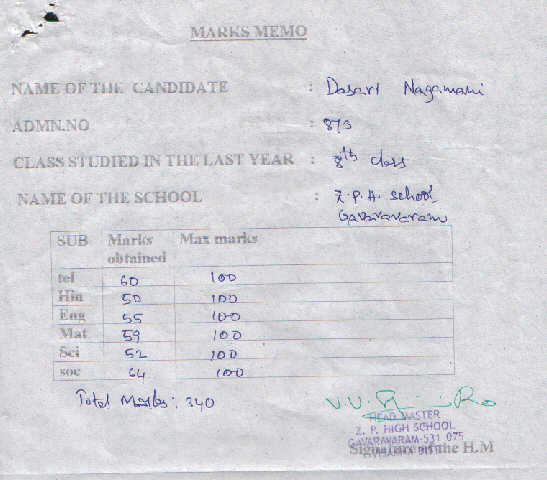 MARKS MEMO
NAME OF THE CANDIDATE : Dasari Nagamani
ADMN.NO : 873
CLASS STUDIED IN THE LAST YEAR : 8th class
NAME OF THE SCHOOL : Z.P.H. School
Gavaravaram
SUB Marks obtained Max marks
tel 60 100
Hin 50 100
Eng 55 100
Mat 59 100
Sci 52 100
soc 64 100
Total Marks: 340
HEAD MASTER
Z. P. HIGH SCHOOL
GAVARAVARAM-531 075
Signature of the H.M